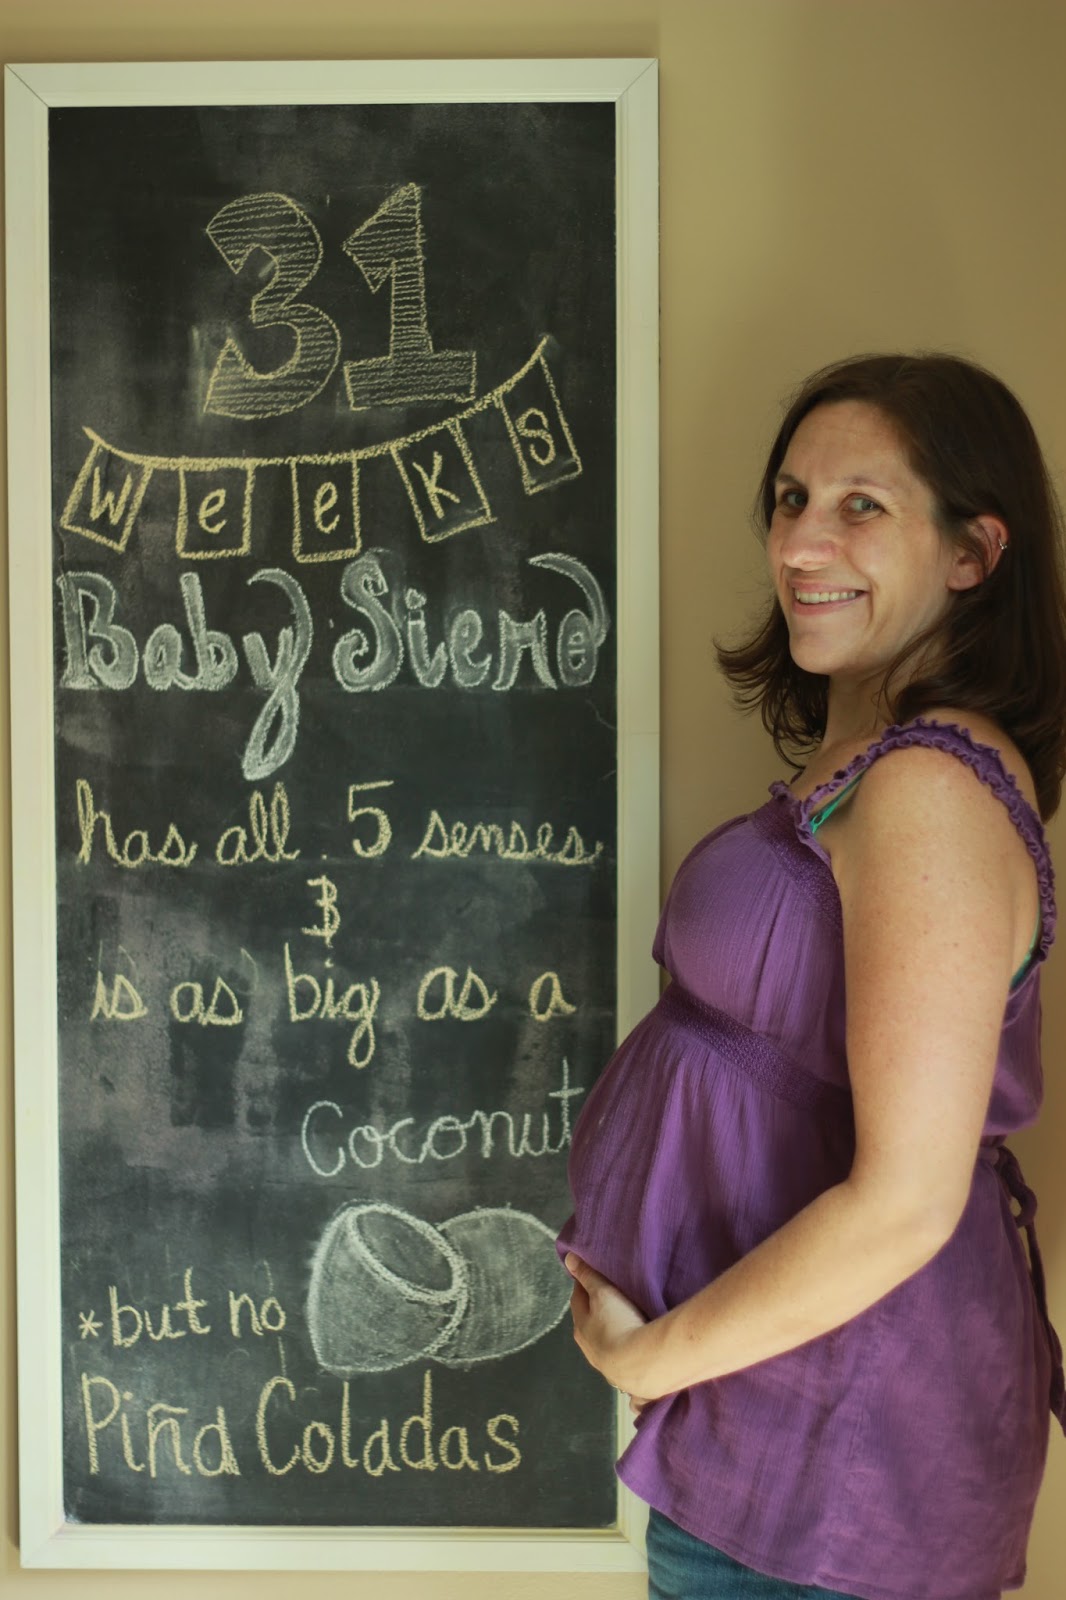 31
weeks
Baby
has all 5 senses
&
is as big as a
Coconut
*but no
Piña Coladas